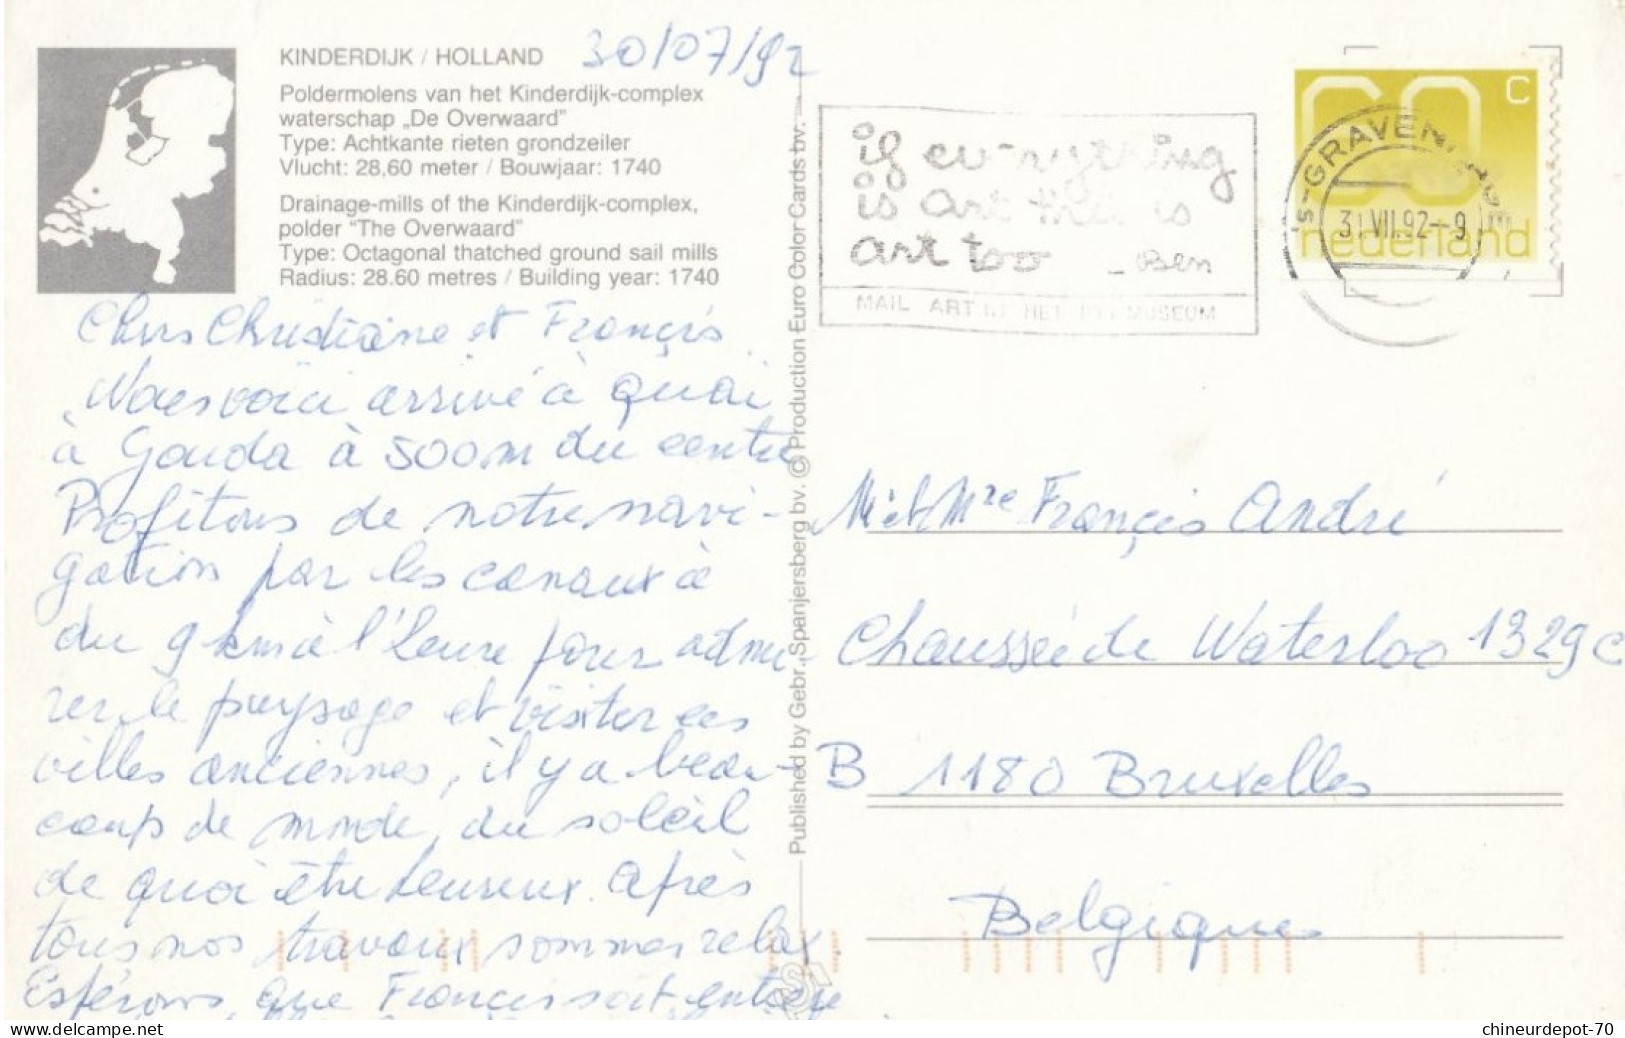 KINDERDIJK / HOLLAND
30/07/92
Poldermolens van het Kinderdijk-complex
waterschap „De Overwaard”
Type: Achtkante rieten grondzeiler
Vlucht: 28,60 meter / Bouwjaar: 1740
Drainage-mills of the Kinderdijk-complex,
polder "The Overwaard"
Type: Octagonal thatched ground sail mills
Radius: 28.60 metres / Building year: 1740
Chers Christiane et Francis
Nous voici arrivé à quai
à Gouda à 500m du centre
Profitons de notre navi-
gation par les canaux à
du 9 km à l'heure pour admi-
rer le paysage et visiter ces
villes anciennes, il y a beau-
coup de monde, du soleil
de quoi être heureux. Après
tous nos travaux sommes relax.
Espérons, que Francis soit
Published by Gebr. Spanjersberg bv. © Production Euro Color Cards bv.
if everything
is art this is
art too - Ben
MAIL ART IN HET PTT MUSEUM
60 c
nederland
's-GRAVENHAGE
31.VII.92-9
M. et Mre Françis André
Chaussée de Waterloo 1329c
B 1180 Bruxelles
Belgiques
www.delcampe.net
chineurdepot-70